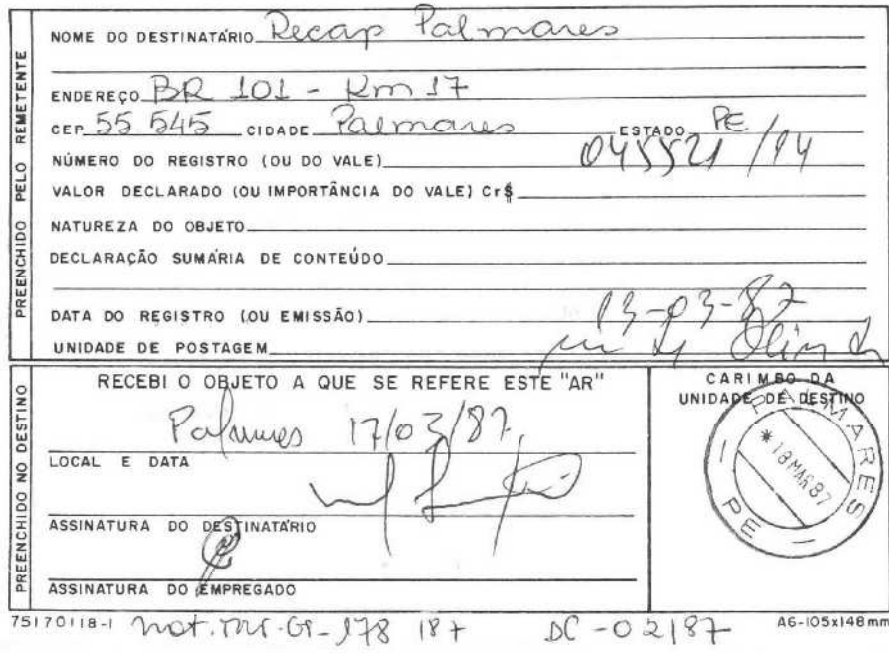 PREENCHIDO PELO REMETENTE
NOME DO DESTINATÁRIO Recap Palmares
ENDEREÇO BR 101 - Km 17
CEP 55 545 CIDADE Palmares ESTADO PE
NÚMERO DO REGISTRO (OU DO VALE) 045521/14
VALOR DECLARADO (OU IMPORTÂNCIA DO VALE) Cr$
NATUREZA DO OBJETO
DECLARAÇÃO SUMÁRIA DE CONTEÚDO
DATA DO REGISTRO (OU EMISSÃO) 13-03-87
UNIDADE DE POSTAGEM
PREENCHIDO NO DESTINO
RECEBI O OBJETO A QUE SE REFERE ESTE "AR"
Palmares 17/03/87
LOCAL E DATA
ASSINATURA DO DESTINATÁRIO
ASSINATURA DO EMPREGADO
CARIMBO DA
UNIDADE DE DESTINO
PALMARES
*18 MAR 87
PE
75170118-1 A6-105x148mm
178/87 DC-02/87